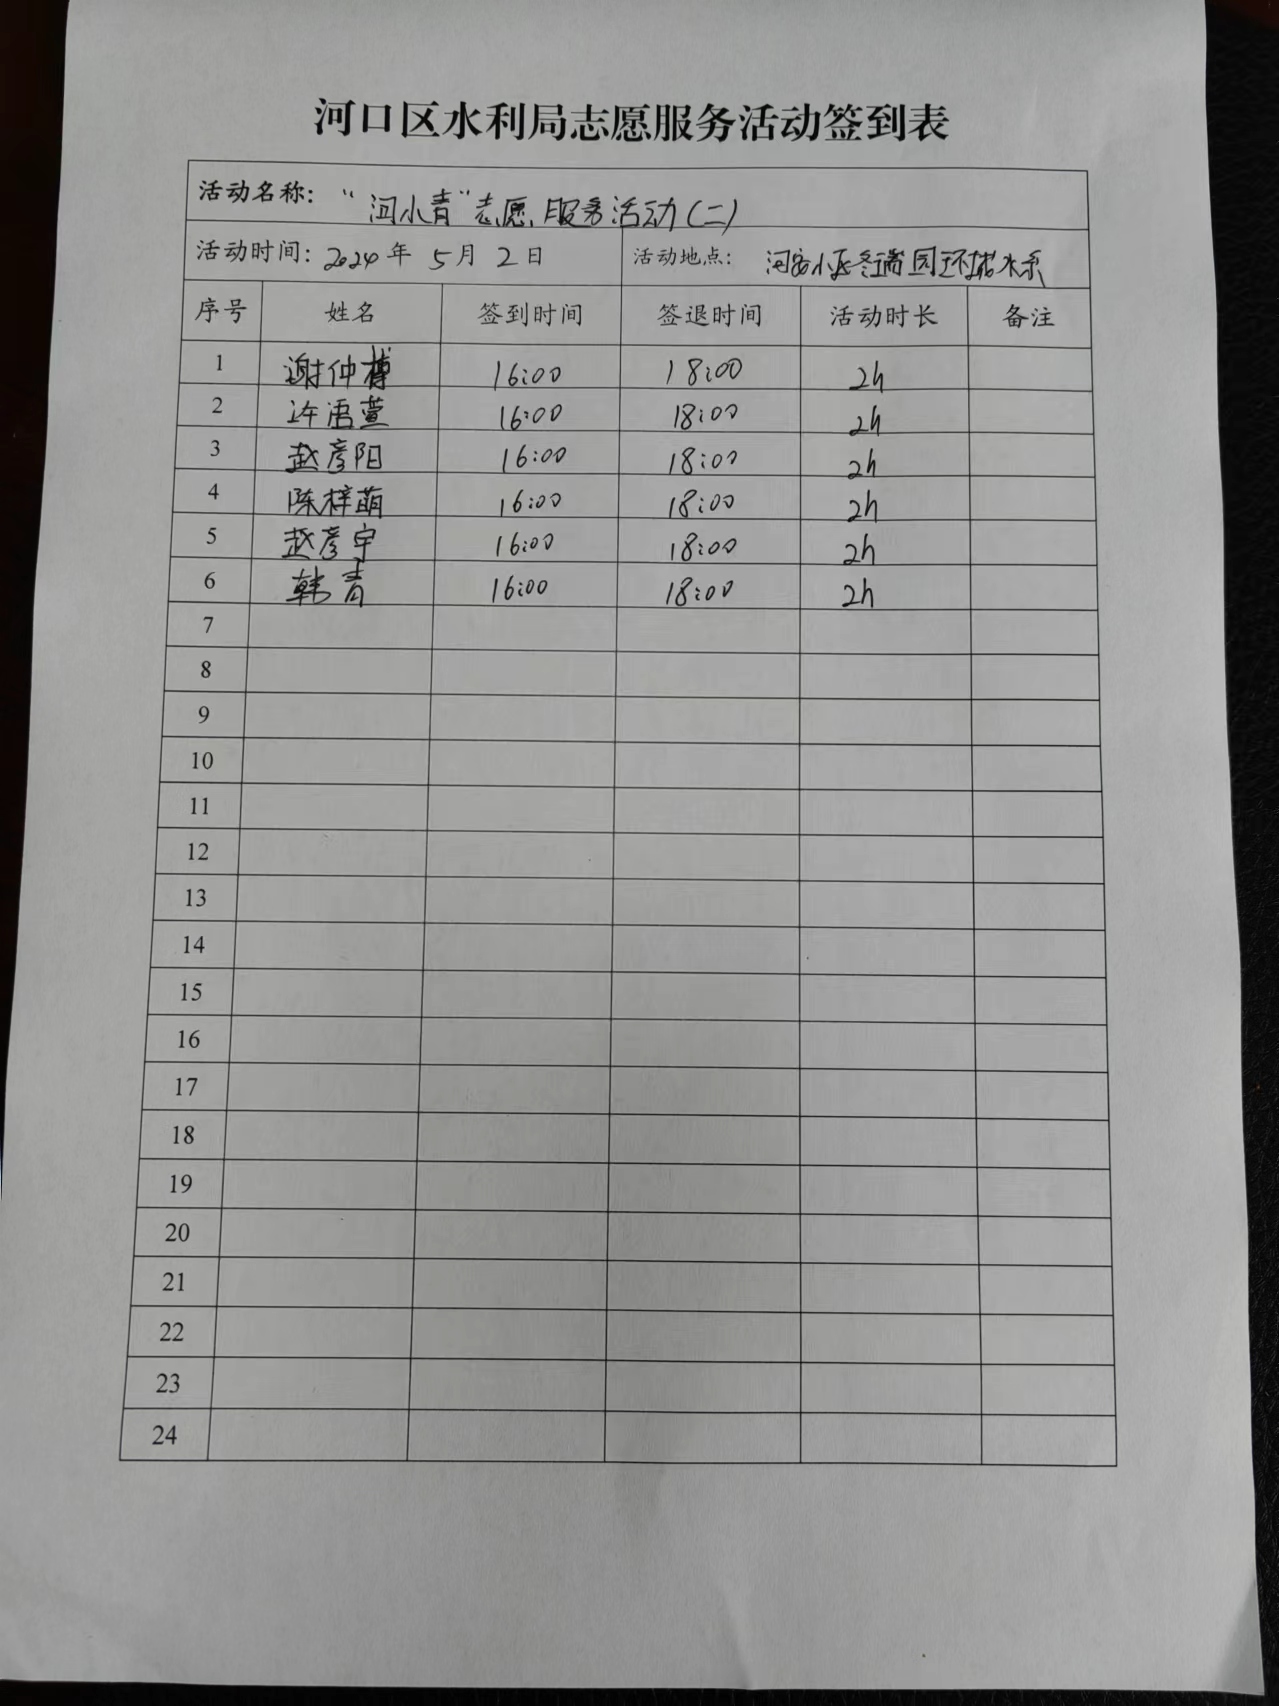 河口区水利局志愿服务活动签到表
活动名称：“河小青”志愿服务活动(二)
活动时间：2024年5月2日 活动地点：河安小区 园环城水系
序号 姓名 签到时间 签退时间 活动时长 备注
1 谢仲博 16:00 18:00 2h
2 许语萱 16:00 18:00 2h
3 赵彦阳 16:00 18:00 2h
4 陈梓萌 16:00 18:00 2h
5 赵彦宇 16:00 18:00 2h
6 韩青 16:00 18:00 2h
7
8
9
10
11
12
13
14
15
16
17
18
19
20
21
22
23
24